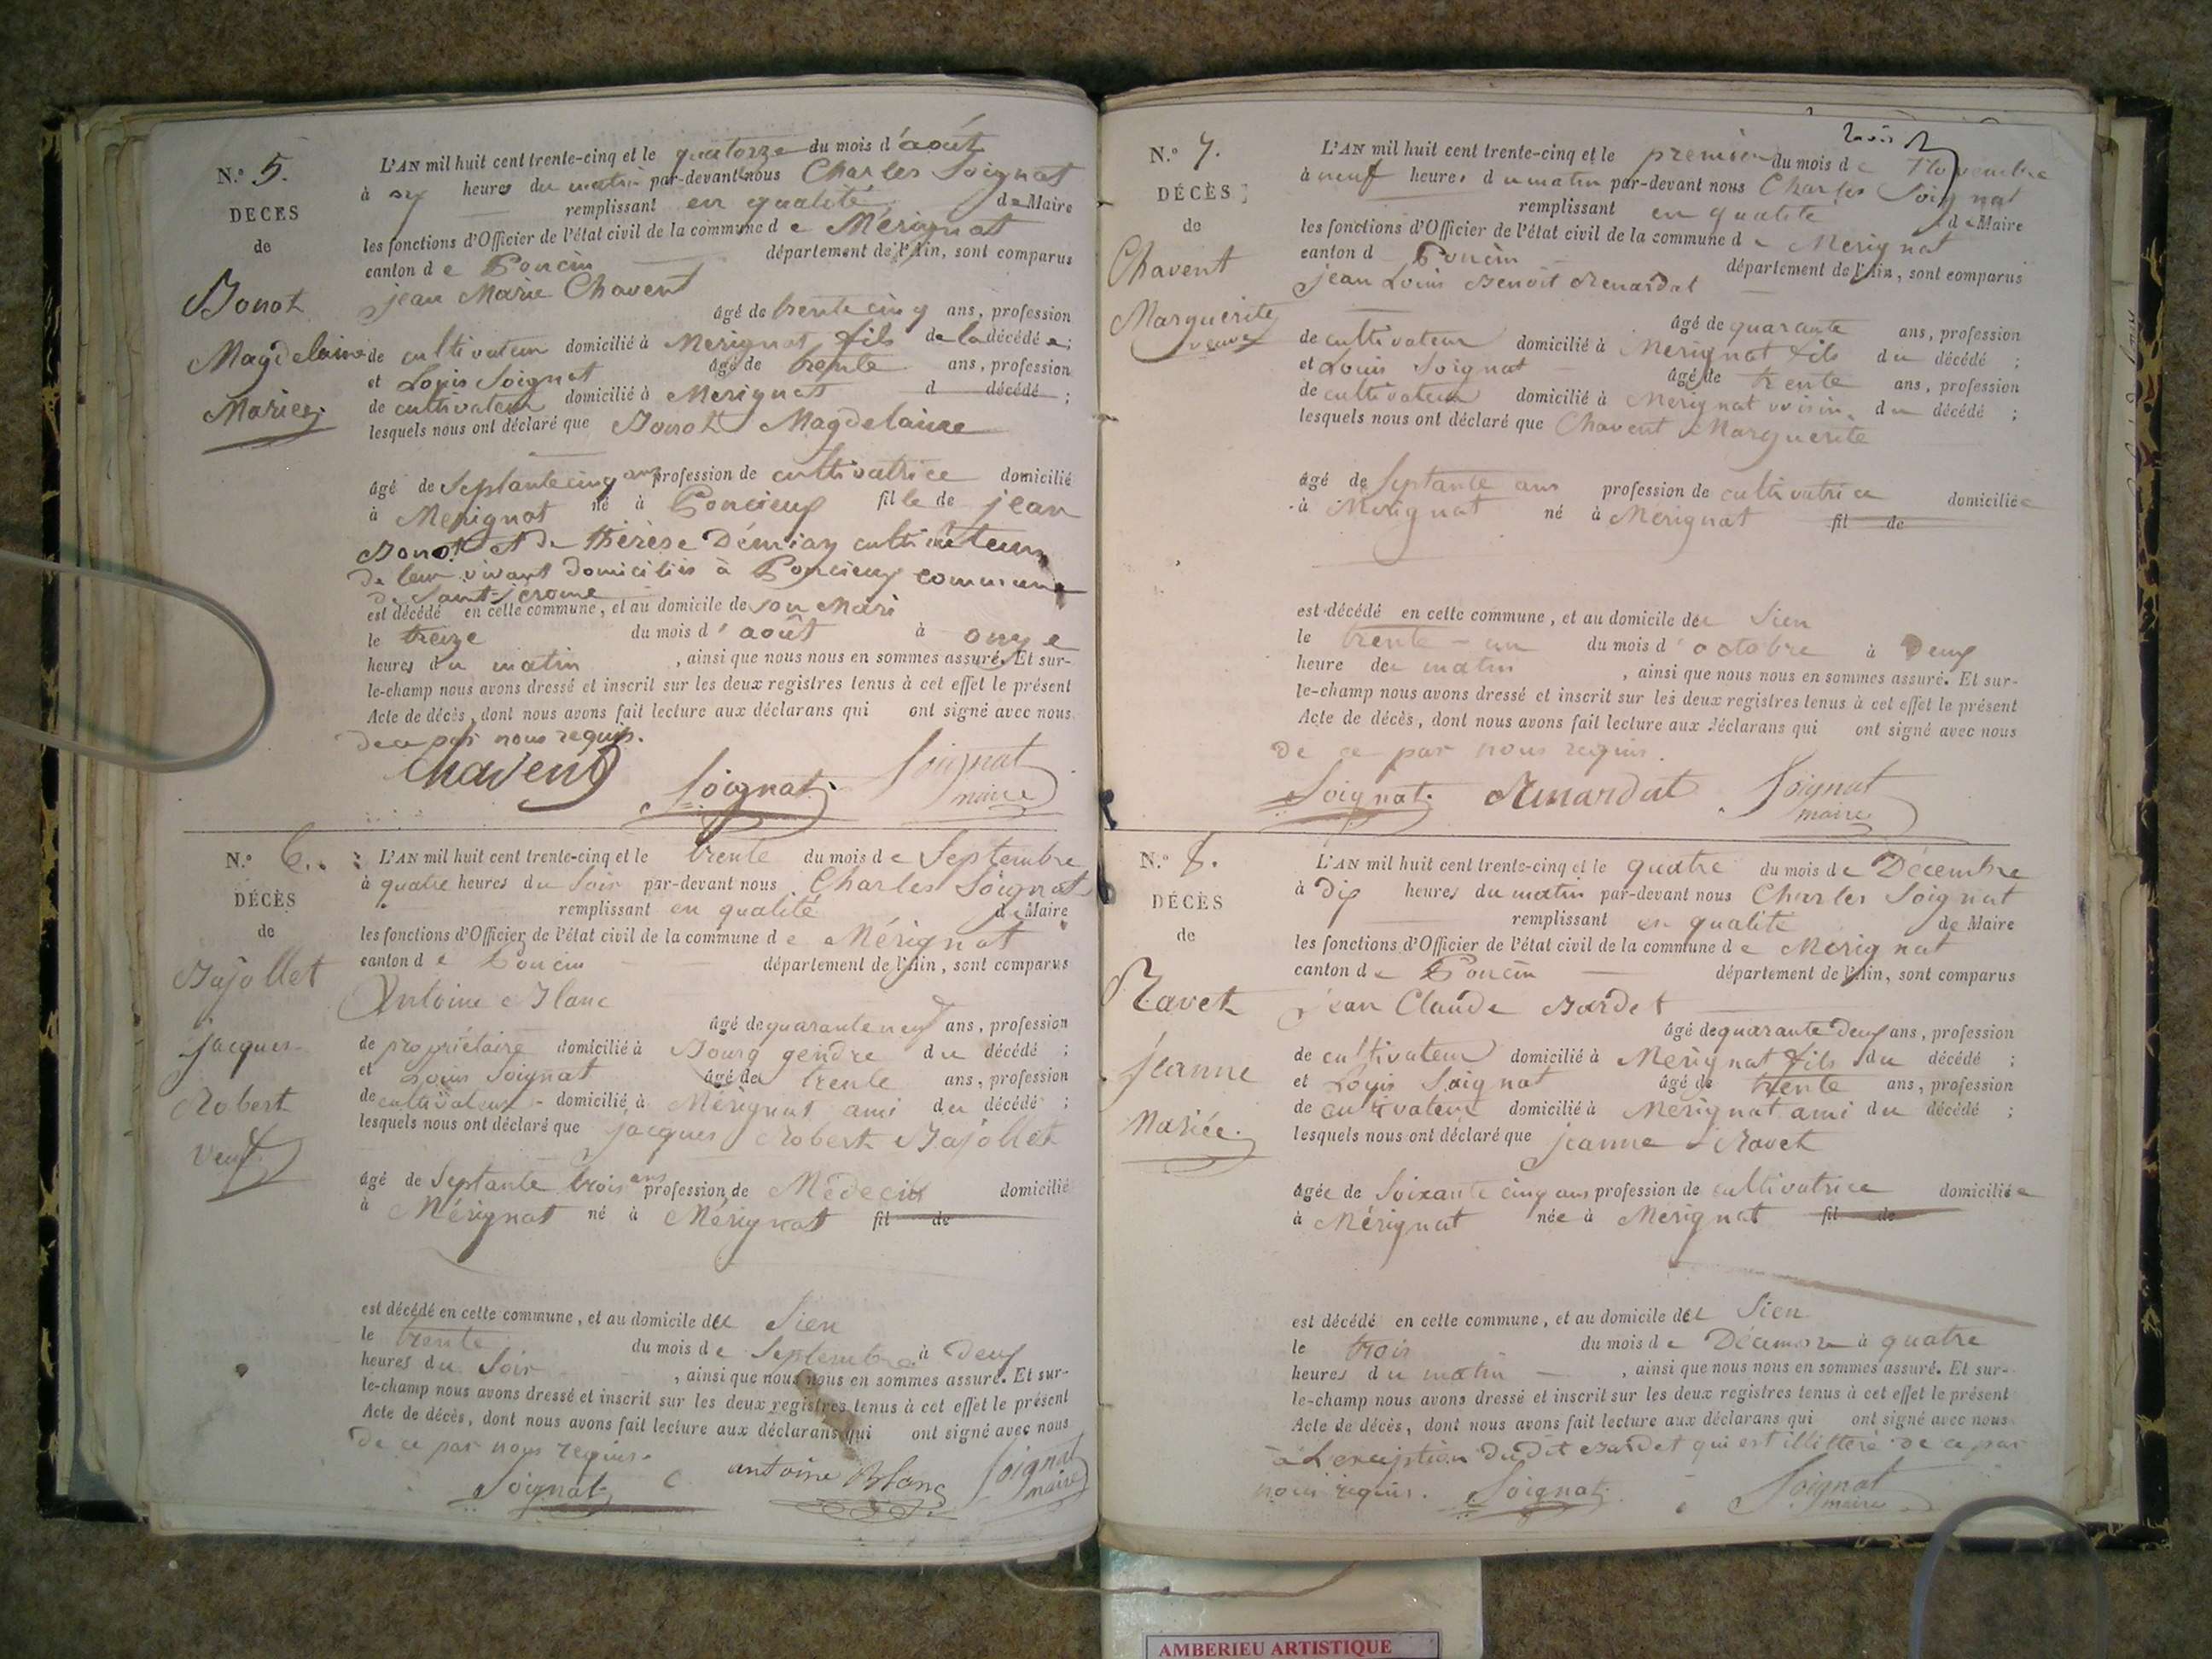 N.° 5.
DECES
de
Bonot
Magdelaine
Mariée
L'AN mil huit cent trente-cinq et le quatorze du mois d'août
à six heures du matin par-devant nous Charles Soignat
remplissant en qualité de Maire
les fonctions d'Officier de l'état civil de la commune de Mérignat
canton de Poncin département de l'Ain, sont comparus
jean Marie Chavent
âgé de trente cinq ans, profession
de cultivateur domicilié à Merignat fils de la décédée;
et Louis Soignat âgé de trente ans, profession
de cultivateur domicilié à Merignat d décédé ;
lesquels nous ont déclaré que Bonot Magdelaine
âgé de Septante cinq ans profession de cultivatrice domicilié
à Merignat né à Poncieux fille de jean
Bonot et de thérèse Démian cultivateurs
de leur vivant domiciliés à Poncieux commune
de Saint-jérome
est décédé en cette commune, et au domicile de son Mari
le treize du mois d'août à onze
heures du matin , ainsi que nous nous en sommes assuré. Et sur-
le-champ nous avons dressé et inscrit sur les deux registres tenus à cet effet le présent
Acte de décès, dont nous avons fait lecture aux déclarans qui ont signé avec nous
de ce par nous requis.
Chavent Soignat Soignat
maire
N.° 6.
DÉCÈS
de
Bajollet
jacques
Robert
veuf
L'AN mil huit cent trente-cinq et le trente du mois de Septembre
à quatre heures du soir par-devant nous Charles Soignat
remplissant en qualité de Maire
les fonctions d'Officier de l'état civil de la commune de Mérignat
canton de Poncin département de l'Ain, sont comparus
Antoine Blanc
âgé de quarante neuf ans, profession
de propriétaire domicilié à Bourg gendre du décédé ;
et Louis Soignat âgé de trente ans, profession
de cultivateur domicilié à Mérignat ami du décédé ;
lesquels nous ont déclaré que jacques Robert Bajollet
âgé de Septante trois ans profession de Médecin domicilié
à Mérignat né à Mérignat fil de
est décédé en cette commune, et au domicile de Sien
le trente du mois de Septembre à deux
heures du Soir , ainsi que nous nous en sommes assuré. Et sur-
le-champ nous avons dressé et inscrit sur les deux registres tenus à cet effet le présent
Acte de décès, dont nous avons fait lecture aux déclarans qui ont signé avec nous
de ce par nous requis.
Soignat antoine Blanc Soignat
maire
N.° 7.
DÉCÈS
de
Chavent
Marguerite
veuve
L'AN mil huit cent trente-cinq et le premier du mois de Novembre
à neuf heures du matin par-devant nous Charles Soignat
remplissant en qualité de Maire
les fonctions d'Officier de l'état civil de la commune de Merignat
canton d Poncin département de l'Ain, sont comparus
jean Louis Benoit Renardat
âgé de quarante ans, profession
de cultivateur domicilié à Merignat fils du décédé ;
et Louis Soignat âgé de trente ans, profession
de cultivateur domicilié à Merignat voisin du décédé ;
lesquels nous ont déclaré que Chavent Marguerite
âgé de Septante ans profession de cultivatrice domiciliée
à Merignat né à Merignat fil de
est décédé en cette commune, et au domicile de Sien
le trente-un du mois d'octobre à deux
heure de matin , ainsi que nous nous en sommes assuré. Et sur-
le-champ nous avons dressé et inscrit sur les deux registres tenus à cet effet le présent
Acte de décès, dont nous avons fait lecture aux déclarans qui ont signé avec nous
de ce par nous requis.
Soignat Renardat Soignat
maire
N.° 8.
DÉCÈS
de
Ravet
jeanne
Mariée.
L'AN mil huit cent trente-cinq et le quatre du mois de Décembre
à dix heures du matin par-devant nous Charles Soignat
remplissant en qualité de Maire
les fonctions d'Officier de l'état civil de la commune de Merignat
canton de Poncin département de l'Ain, sont comparus
jean Claude Bardet
âgé de quarante deux ans, profession
de cultivateur domicilié à Merignat fils du décédé ;
et Louis Soignat âgé de trente ans, profession
de cultivateur domicilié à Merignat ami du décédé ;
lesquels nous ont déclaré que jeanne Ravet
âgée de Soixante cinq ans profession de cultivatrice domiciliée
à Mérignat née à Merignat fil de
est décédé en cette commune, et au domicile de Sien
le trois du mois de Décembre à quatre
heures du matin , ainsi que nous nous en sommes assuré. Et sur-
le-champ nous avons dressé et inscrit sur les deux registres tenus à cet effet le présent
Acte de décès, dont nous avons fait lecture aux déclarans qui ont signé avec nous
à L'exception dudit Bardet qui est illitteré de ce par
nous requis. Soignat Soignat
maire
AMBERIEU ARTISTIQUE